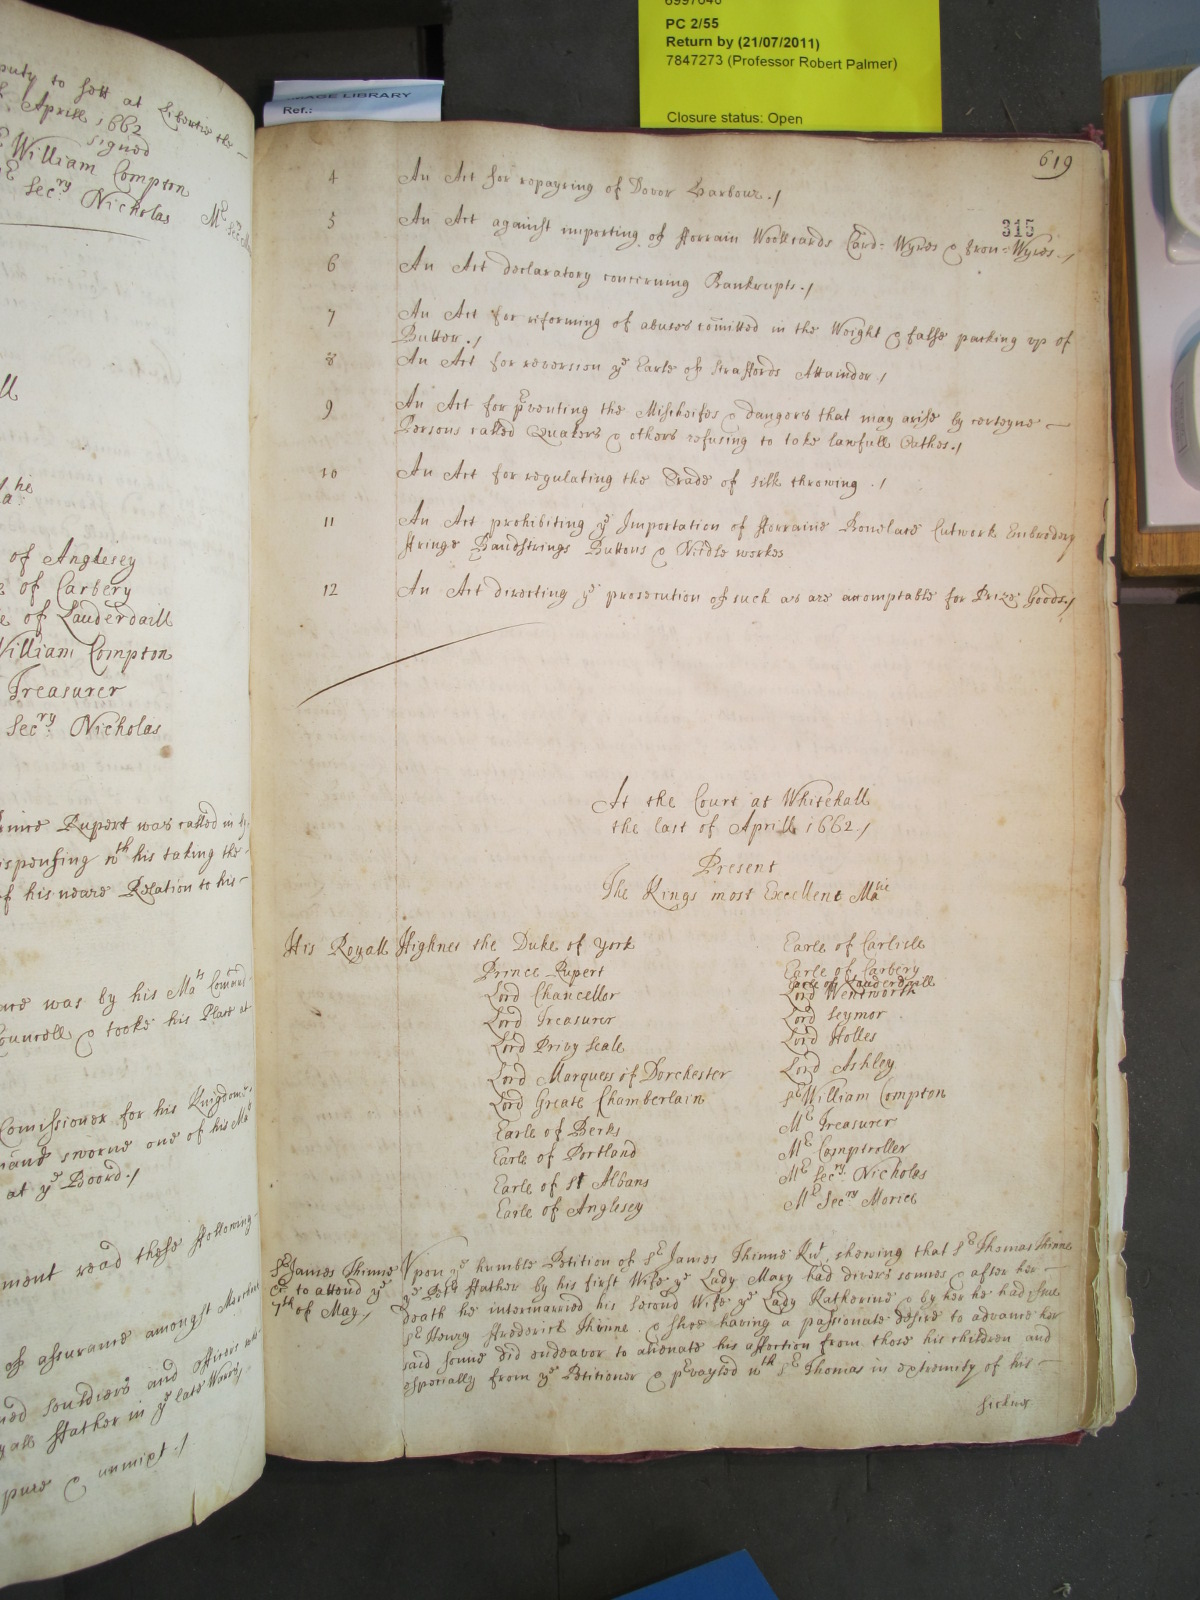 6997646
PC 2/55
Return by (21/07/2011)
7847273 (Professor Robert Palmer)
Closure status: Open
LIBRARY
Ref.:
puty to sett at Libertie the
Aprill 1662
Signed
William Compton
Secry Nicholas
of Anglesey
of Carbery
e of Lauderdaill
William Compton
Treasurer
Secry Nicholas
Prince Rupert was called in
ispensing wth his taking the
of his neare Relation to his
was by his Mats Comand
Councell & tooke his Place at
Comissioner for his Kingdome
sworne one of his Mats
at ye Boord./
ment read these ffollowing
of assurance amongst Marchan
souldiers and officers
yall ffather in ye late Warrs
pure & unmixt ./
619
315
4 An Act for repayring of Dover Harbour./
5 An Act against importing of fforrain Woolcards Card-Wyres & Iron-Wyres./
6 An Act declaratory concerning Bankrupts./
7 An Act for reforming of abuses comitted in the Weight & false packing up of
Butter./
8 An Act for reversion ye Earle of Straffords Attainder./
9 An Act for pventing the Mischeifes & dangers that may arise by certeyne
Persons called Quakers & others refusing to take lawfull Oathes./
10 An Act for regulating the Trade of silk throwing ./
11 An Act prohibiting ye Importation of fforraine Bonelace Cutwork Enbrodery
ffringe Bandstrings Buttons & Nidle workes
12 An Act directing ye prosecution of such as are accomptable for Prize Goods./
At the Court at Whitehall
the last of Aprill 1662./
Present
The Kings most Excellent Matie
His Royall Highnes the Duke of York
Prince Rupert
Lord Chancellor
Lord Treasurer
Lord Privy Seale
Lord Marquess of Dorchester
Lord Greate Chamberlain
Earle of Berks
Earle of Portland
Earle of St Albans
Earle of Anglesey
Earle of Carlisle
Earle of Carbery
Earle of Lauderdaill
Lord Wentworth
Lord Seymor
Lord Holles
Lord Ashley
Sr William Compton
Mr Treasurer
Mr Comptroller
Mr Secry Nicholas
Mr Secry Morice
Sr James Thinne
to attend ye
7th of May./
Vpon ye humble Petition of Sr James Thinne Knt, shewing that Sr Thomas Thinne
ye Petrs ffather by his first Wife ye Lady Mary had divers sonnes & after her
death he intermarried his second Wife ye Lady Katherine & by her he had issue
Sr Henry ffrederick Thinne. & shee having a passionate desire to advance her
said sonne did endeavor to alienate his affection from those his children and
especially from ye Petitioner & pvayled wth Sr Thomas in extremity of his
sicknes